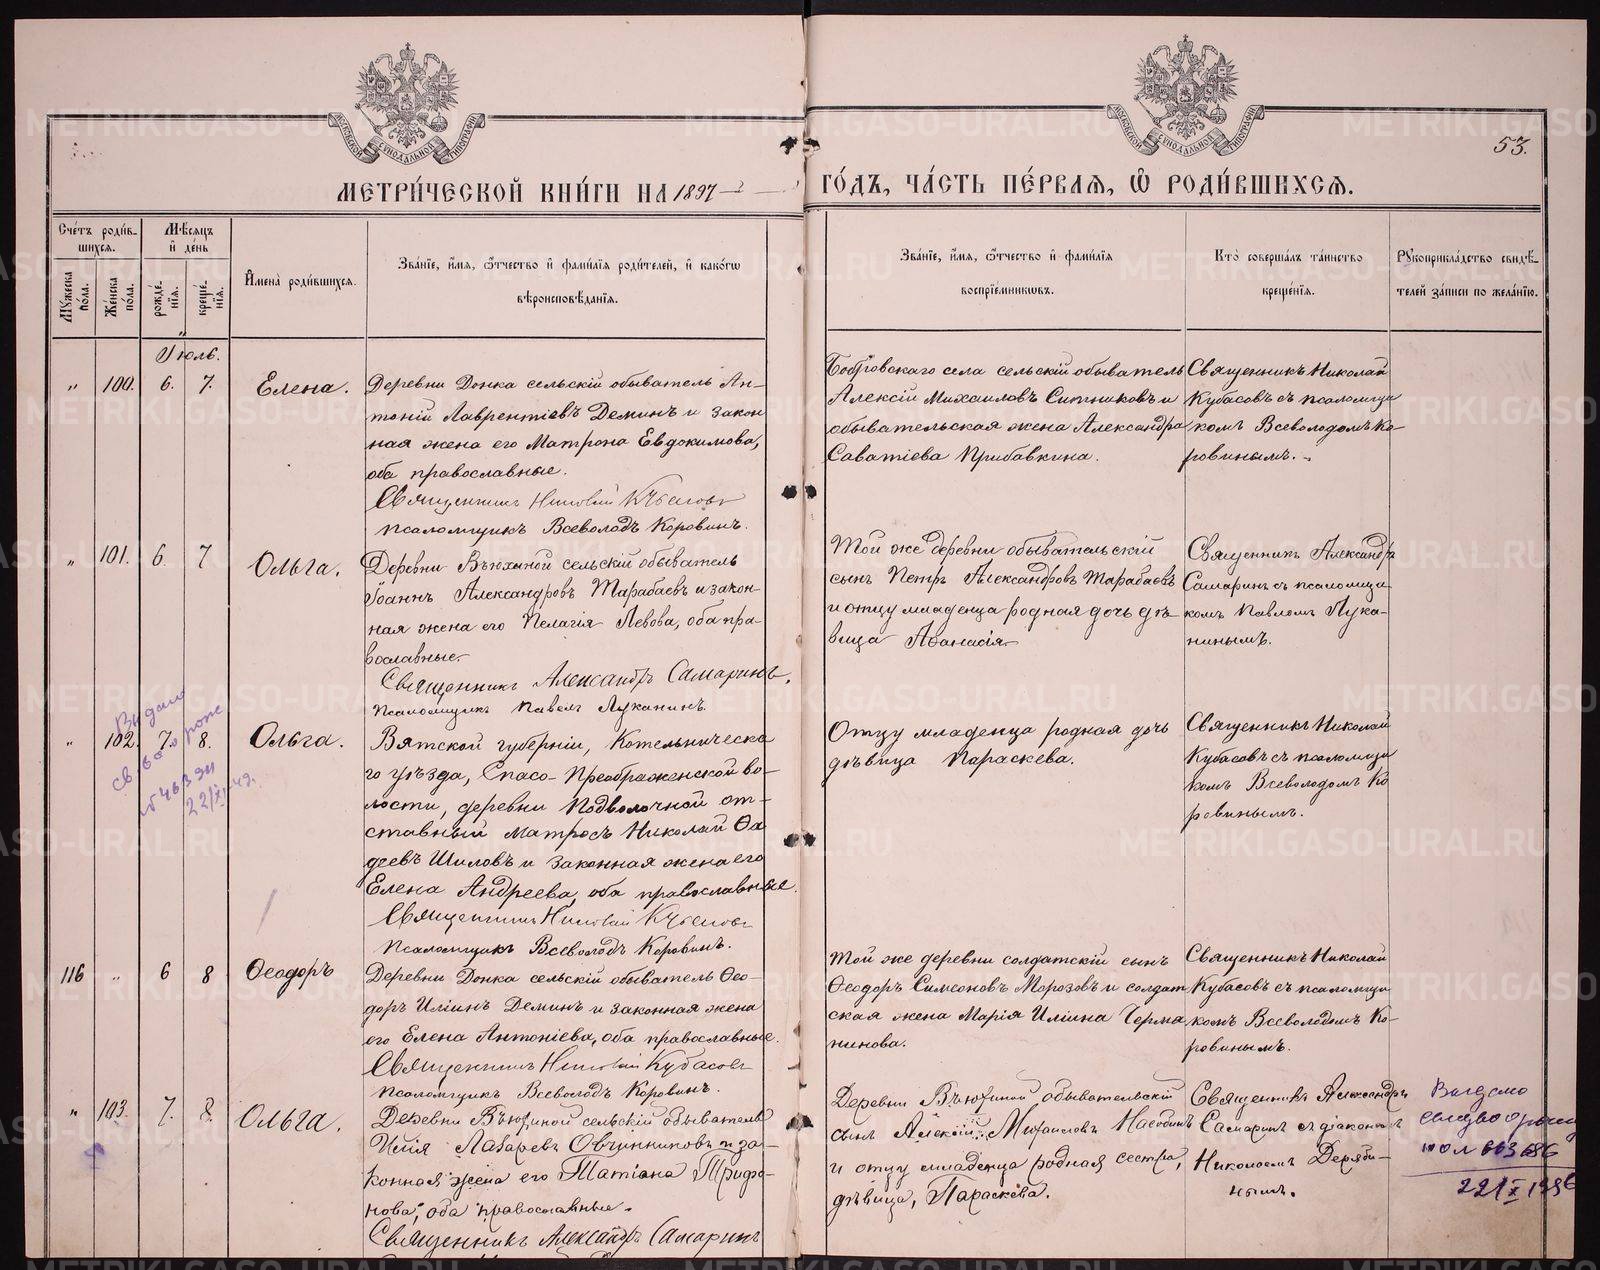 53.
МЕТРИ́ЧЕСКОЙ КНИ́ГИ НА 1897
ГО́ДЪ, ЧА́СТЬ ПЕ́РВАЯ, Ѡ҆ РОДИ́ВШИХСЯ.
Сче́тъ роди́в-
шихся.
Мѣ́сяцъ
и҆ де́нь
Му́жеска по́ла.
Же́нска по́ла.
рожде́-
нїя.
креще́-
нїя.
И҆мена̀ роди́вшихся.
Зва́нїе, и҆́мя, ѻ҆́тчество и҆ фами́лїя роди́телей, и҆ како́гѡ
вѣроисповѣ́данїя.
Зва́нїе, и҆́мя, ѻ҆́тчество и҆ фами́лїя
воспрїе́мникѡвъ.
Кто̀ соверша́лъ та́инство
креще́нїя.
Рукоприкла́дство свидѣ́-
телей за́писи по жела́нїю.
Іюль.
" 100. 6. 7. Елена.
Деревни Донка сельскій обыватель Ан-
тоній Лаврентіевъ Деминъ и закон
ная жена его Матрона Евдокимова,
оба православные.
Священникъ Николай Кубасовъ
Псаломщикъ Всеволодъ Коровинъ.
Бобровскаго села сельскій обыватель
Алексій Михаиловъ Ситниковъ и
обывательская жена Александра
Саватіева Прибавкина.
Священникъ Николай
Кубасовъ съ псаломщи
комъ Всеволодомъ Ко-
ровинымъ.
" 101. 6. 7 Ольга.
Деревни Вьюхиной сельскій обыватель
Іоаннъ Александровъ Тарабаевъ и закон-
ная жена его Пелагія Львова, оба пра-
вославные.
Священникъ Александръ Самаринъ.
Псаломщикъ Павелъ Луканинъ.
Той же деревни обывательскій
сынъ Петръ Александровъ Тарабаевъ
и отцу младенца родная дочь дѣ-
вица Афанасія
Священникъ Александръ
Самаринъ съ псаломщи
комъ Павломъ Лука-
нинымъ.
Выдано
" 102. 7. 8. Ольга.
22/XI
Вятской губерніи, Котельническа
го уѣзда, Спасо-Преображенской во-
лости, деревни Подволочной от-
ставный матросъ Николай Ѳа
деевъ Шиловъ и законная жена его
Елена Андреева, оба православные.
Священникъ Николай Кубасовъ
Псаломщикъ Всеволодъ Коровинъ.
Отцу младенца родная дочь
дѣвица Параскева.
Священникъ Николай
Кубасовъ съ псаломщи
комъ Всеволодомъ Ко
ровинымъ.
116 " 6 8 Ѳеодоръ
Деревни Донка сельскій обыватель Ѳео-
доръ Иліинъ Деминъ и законная жена
его Елена Антоніева, оба православные.
Священникъ Николай Кубасовъ
Псаломщикъ Всеволодъ Коровинъ.
Той же деревни солдатскій сынъ
Ѳеодоръ Симеоновъ Морозовъ и солдат
ская жена Марія Иліина Черма
нинова.
Священникъ Николай
Кубасовъ съ псаломщи
комъ Всеволодомъ Ко-
ровинымъ.
" 103. 7. 8. Ольга.
Деревни Вьюхиной сельскій обыватель
Илія Лазаревъ Овчинниковъ и за-
конная жена его Татіана Трифо-
нова, оба православные.
Священникъ Александръ Самаринъ
Деревни Вьюхиной обывательскій
сынъ Алексій Михаиловъ
и отцу младенца родная сестра,
дѣвица, Параскева.
Священникъ Александръ
Самаринъ съ діакономъ
Николаемъ Деряби-
нымъ.
Выдано
METRIKI.GASO-URAL.RU